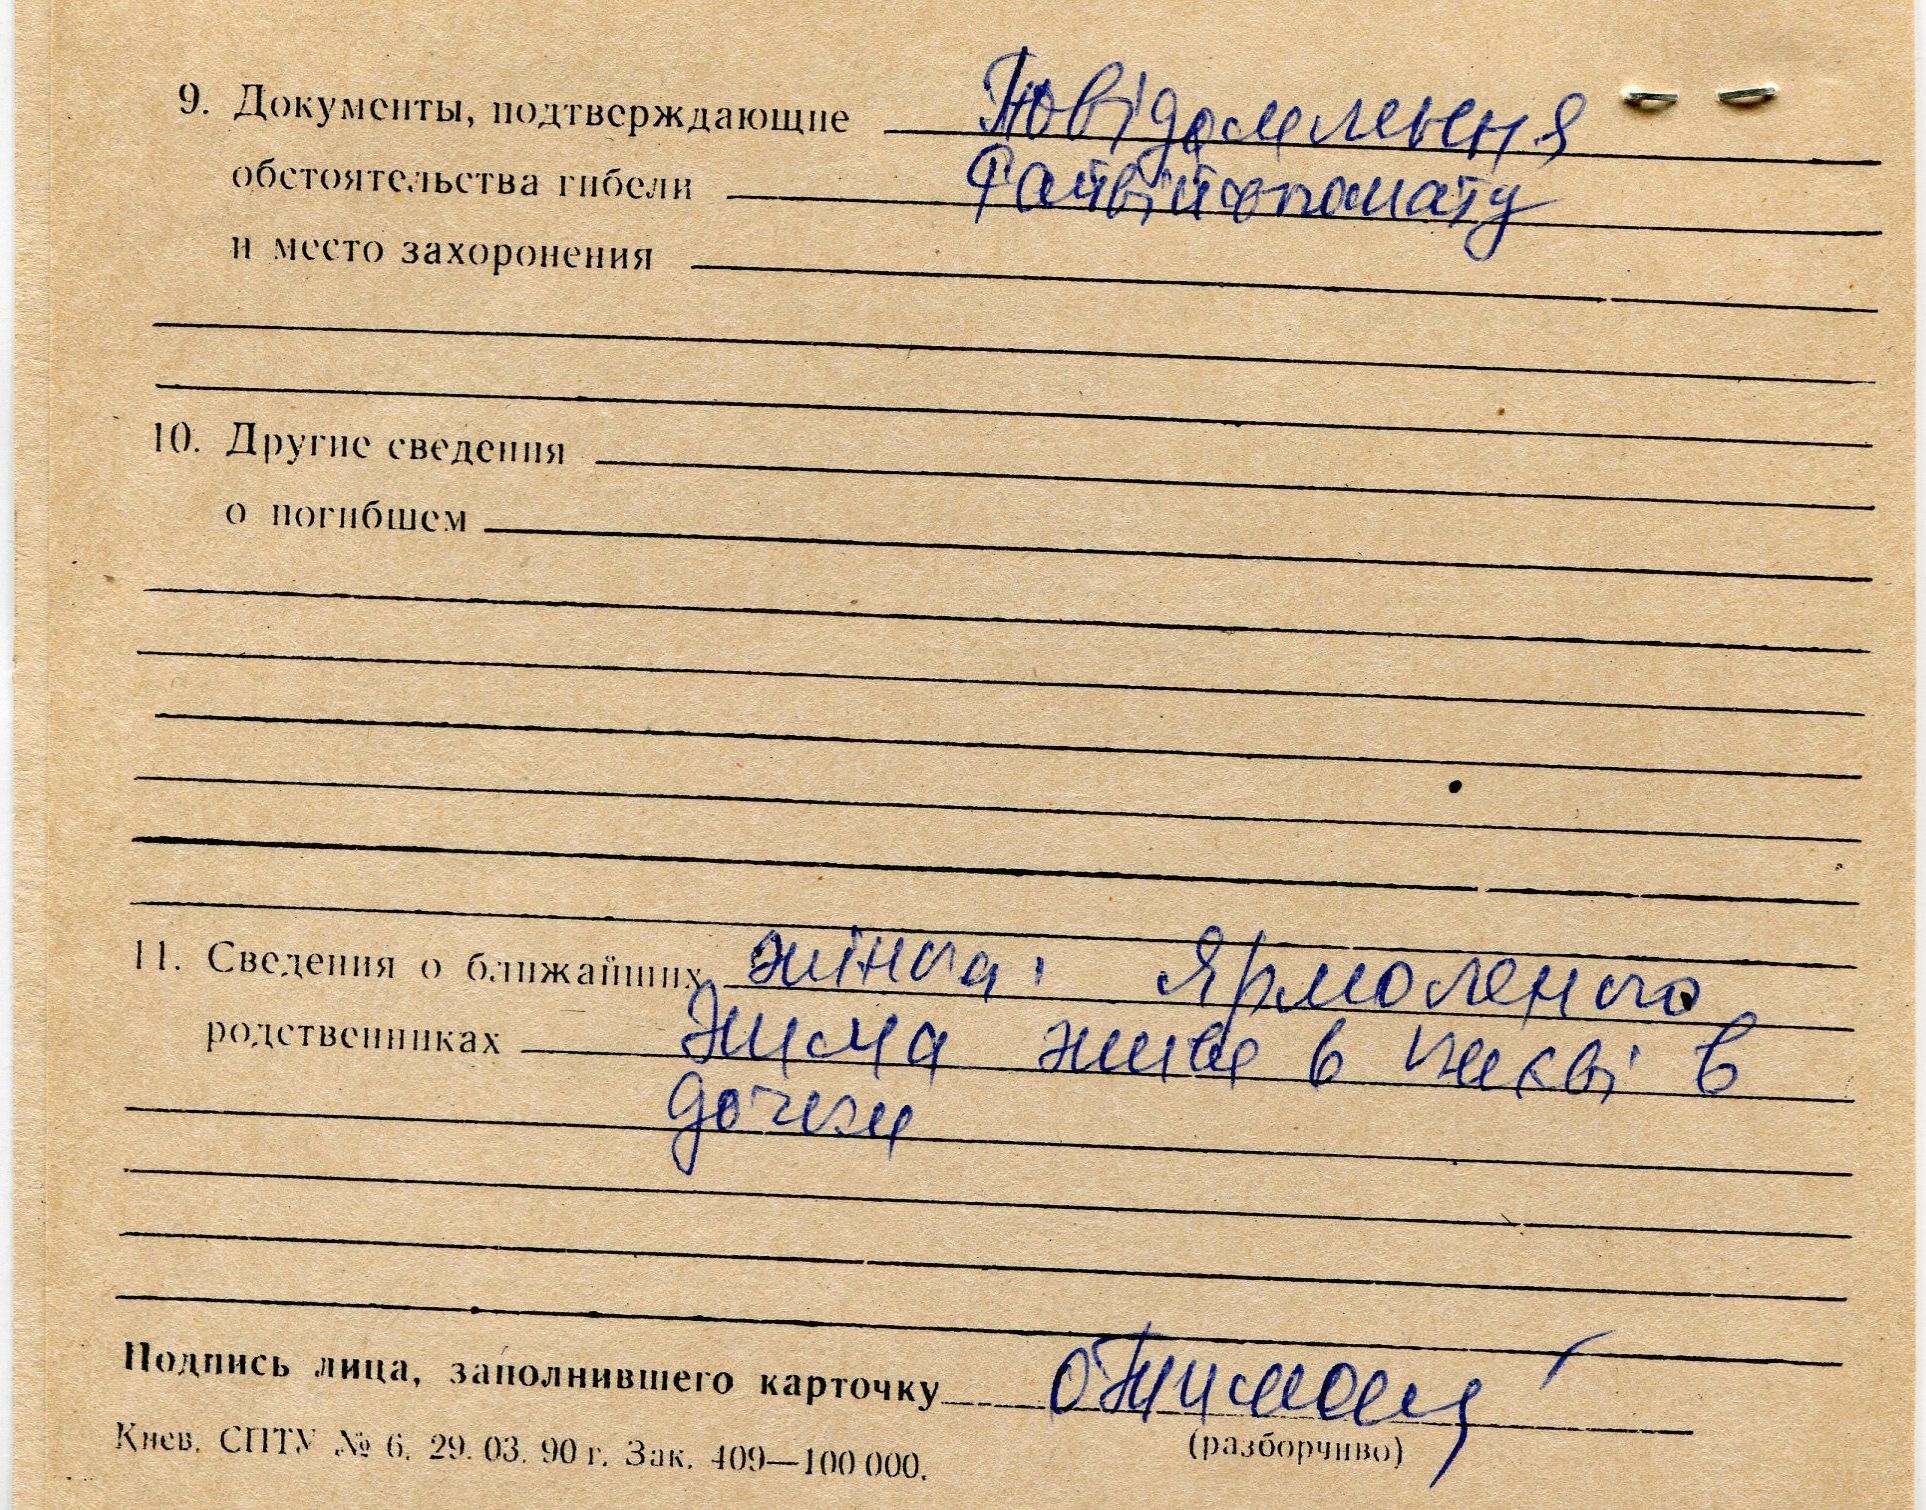 9. Документы, подтверждающие Повідомлення
обстоятельства гибели Райвійскомату
и место захоронения
10. Другие сведения
о погибшем
11. Сведения о ближайших жінка: Ярмоленко
родственниках живе в в
дочки
Подпись лица, заполнившего карточку
(разборчиво)
Киев. СПТУ № 6. 29. 03. 90 г. Зак. 409—100 000.